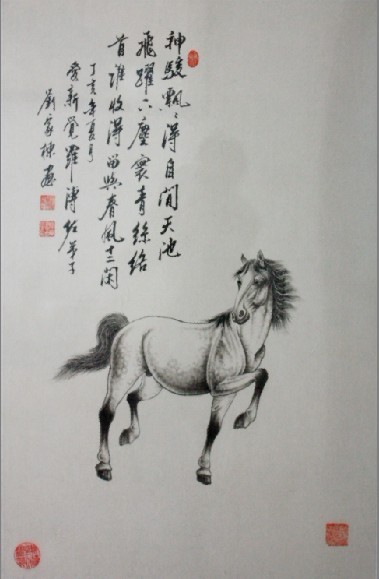 神駿飄々得自閒天池
飛躍下塵寰青絲絡
首誰收得留與春風十二閑
丁亥年夏月
愛新覺羅溥佐弟子
劉家棟畫